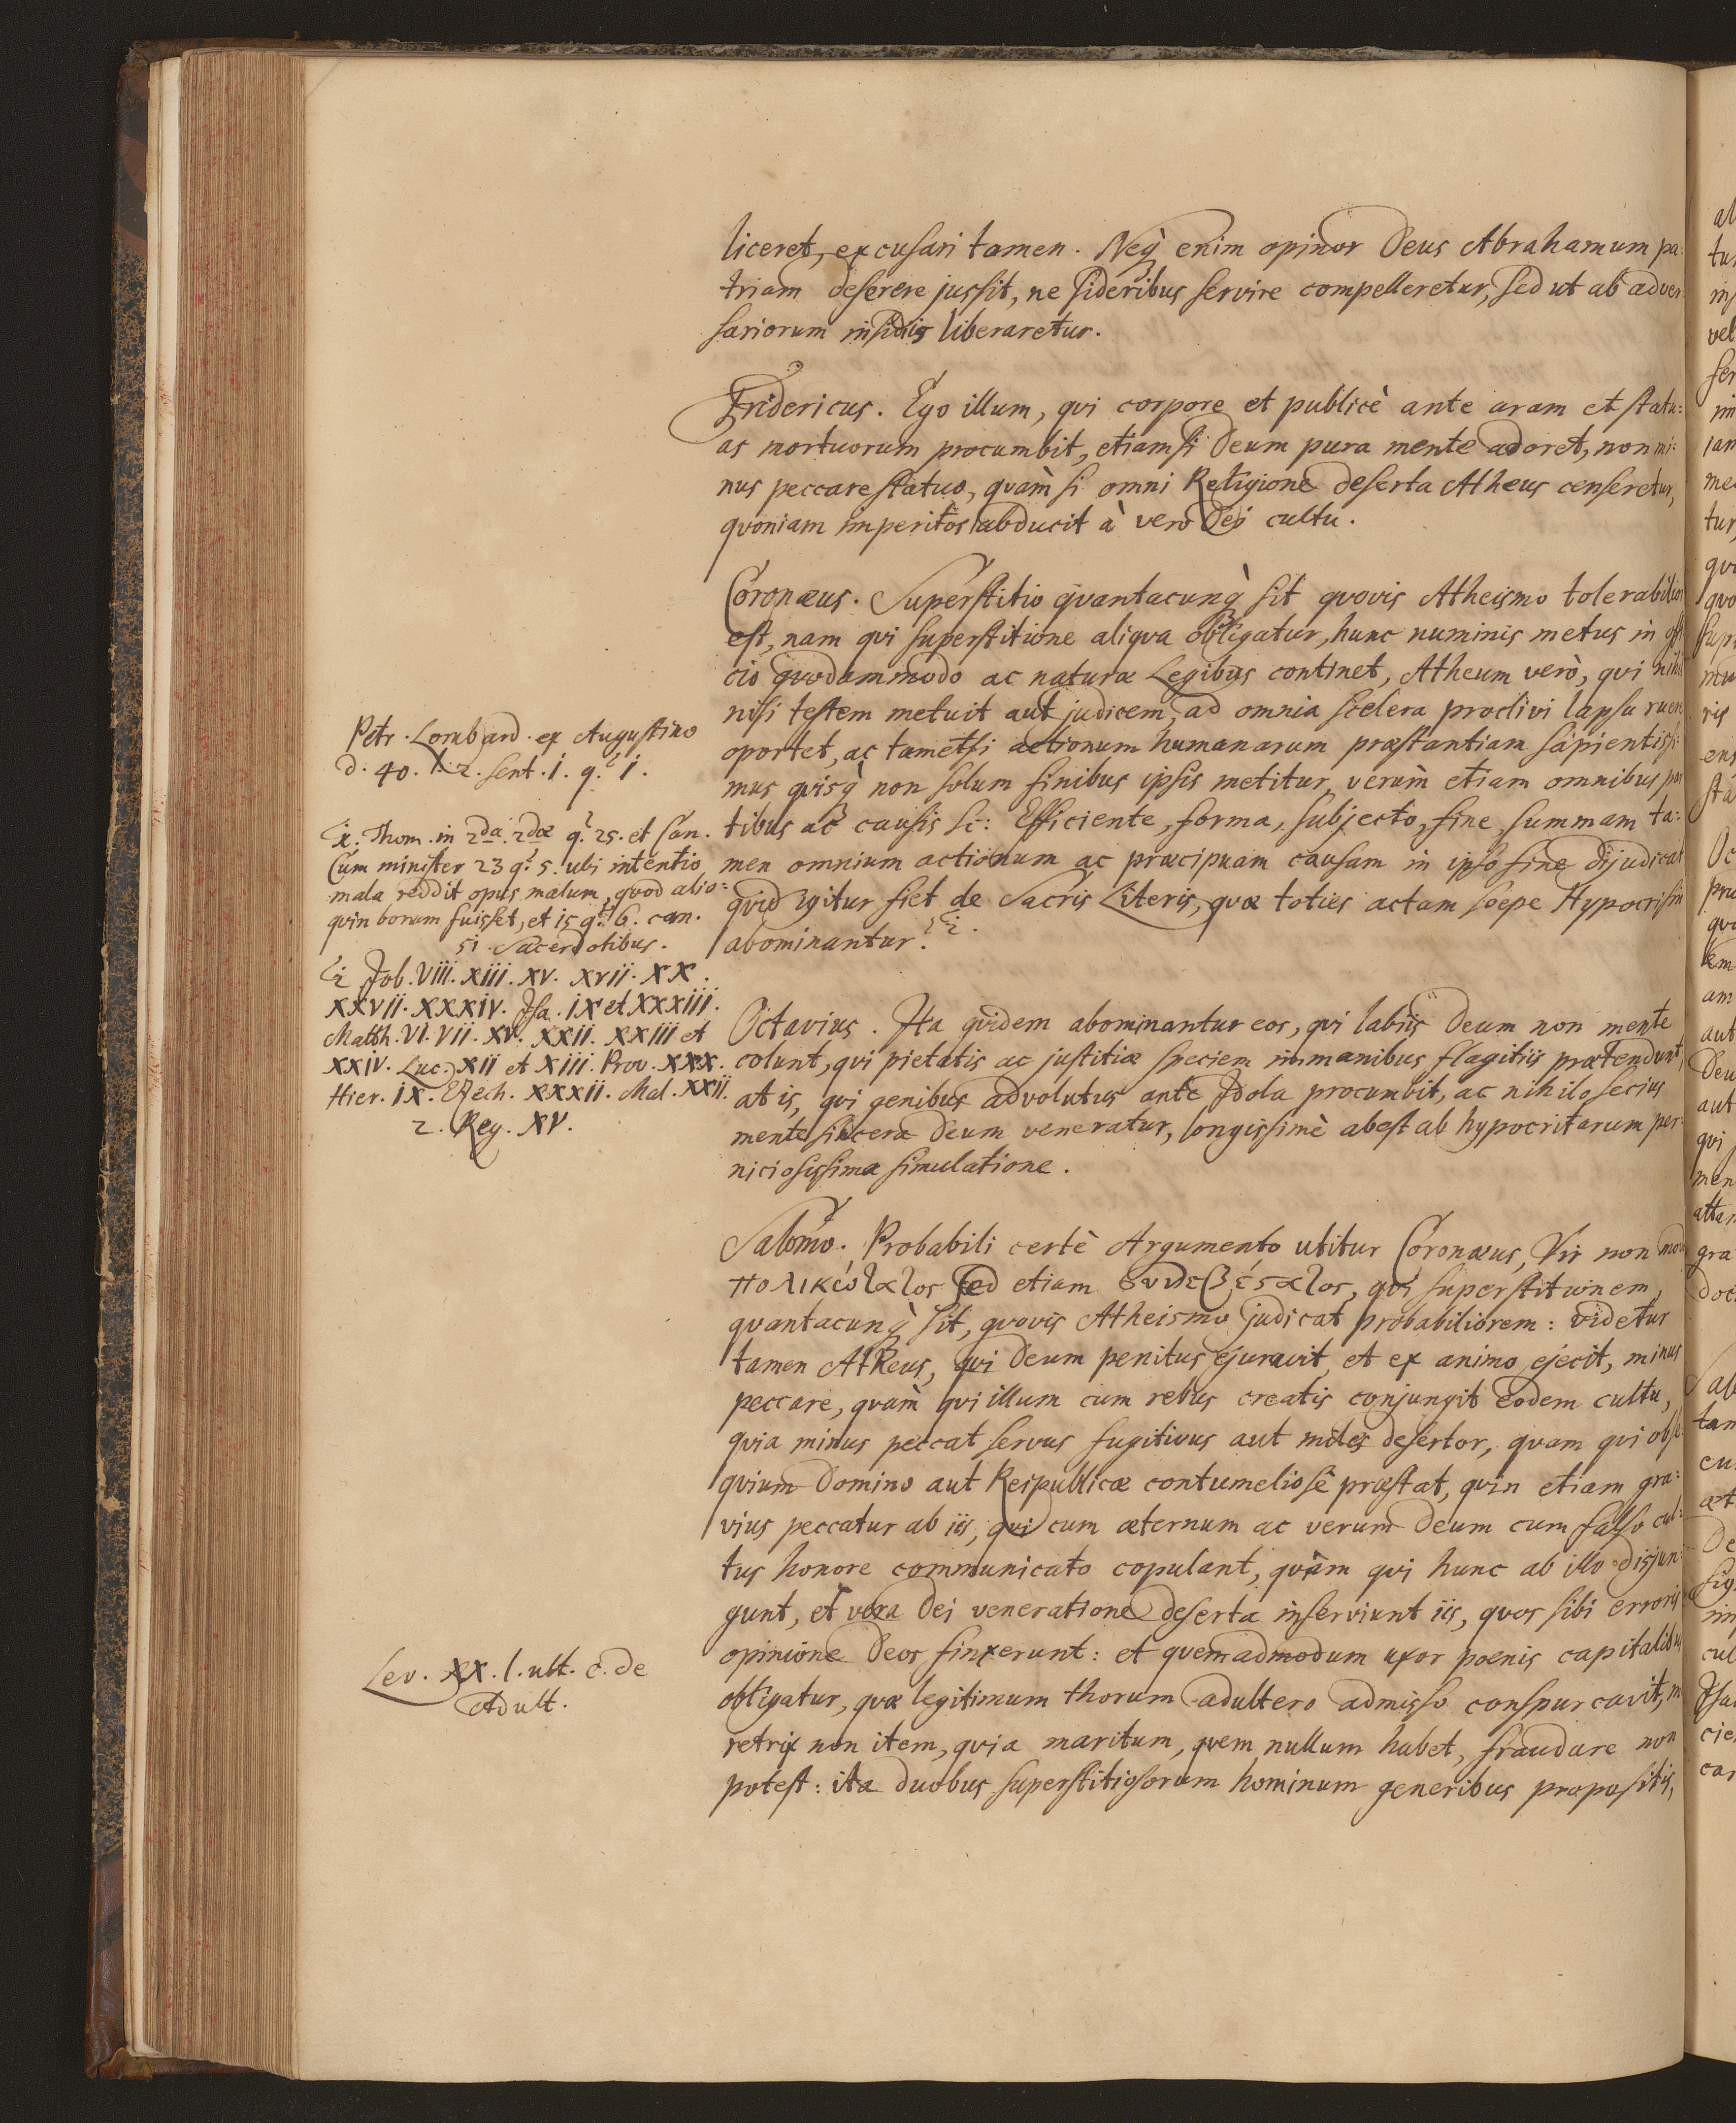 liceret, excusari tamen. Neq̀ enim opinor Deus Abrahamum pa:
triam deserere jussit, ne sideribus servire compelleretur, sed ut ab adver
sariorum insidiis liberaretur.
Fridericus. Ego illum, qvi corpore et publicè ante aram et statu:
as mortuorum procumbit, etiamsi Deum pura mente adoret, non mi:
nus peccare statuo, qvàm si omni Religione deserta Atheus censeretur,
qvoniam imperitos abducit à vero Dei cultu.
Coronæus. Superstitio qvantacunq̀ sit qvovis Atheismo tolerabilior
est, nam qvi superstitione aliqva obligatur, hunc numinis metus in offi
cio qvodammodo ac naturæ Legibus continet, Atheum verò, qvi nihil
nisi testem metuit aut judicem, ad omnia scelera proclivi lapsu ruere
oportet, ac tametsi actionum humanarum præstantiam sapientissi:
mus qvisq̀ non solum finibus ipsis metitur, verùm etiam omnibus par
tibus ac causis sc: Efficiente, forma, subjecto, fine, summam ta:
men omnium actionum ac præcipuam causam in ipso fine dijudicat
qvid igitur fiet de Sacris Literis, qvæ toties actam sœpe Hypocrisin
abominantur?
Petr. Lombard. ex Augustino
d. 40. l. 2. sent. 1. q. 1.
Ex. Thom. in 2da 2dæ q. 25. et Can.
Cum minister 23 q. 5. ubi intentio
mala reddit opus malum, qvod alio:
qvin bonum fuisset, et 15 q. 6. can.
51. Sacerdotibus.
Job. VIII. XIII. XV. XVII. XX.
XXVII. XXXIV. Jsa. IX et XXXIII.
Matth. VI. VII. XV. XXII. XXIII et
XXIV. Luc. XII et XIII. Prov. XXX.
Hier. IX. Ezech. XXXII. Mal. XXII.
2. Reg. XV.
Octavius. Ita qvidem abominantur eos, qvi labiis Deum non mente
colunt, qvi pietatis ac justitiæ speciem immanibus flagitiis prætendunt,
at is, qvi genibus advolutus ante Idola procumbit, ac nihilo secius
mente sincera Deum veneratur, longissimè abest ab hypocritarum per:
niciosissima simulatione.
Salomo. Probabili certè Argumento utitur Coronæus, Vir non modo
sed etiam qvi superstitionem,
qvantacunq̀ sit, qvovis Atheismo judicat probabiliorem: videtur
tamen Atheus, qvi Deum penitus ejuravit, et ex animo ejecit, minus
peccare, qvàm qvi illum cum rebus creatis conjungit eodem cultu,
qvia minus peccat servus fugitivus aut miles desertor, qvam qvi obse:
qvium Domino aut Reipublicæ contumeliosè præstat, qvin etiam gra:
vius peccatur ab iis, qvi cum æternum ac verum Deum cum falso cul:
tus honore communicato copulant, qvàm qvi hunc ab illo disjun:
gunt, et vera Dei veneratione deserta inserviunt iis, qvos sibi erroris
opinione Deos finxerunt: et qvemadmodum uxor pœnis capitalibus
obligatur, qvæ legitimum thorum adultero admisso conspurcavit, m
retrix non item, qvia maritum, qvem nullum habet, fraudare non
potest: ita duobus superstitiosorum hominum generibus propositis,
Lev. XX. l. ult. c. de
Adult.